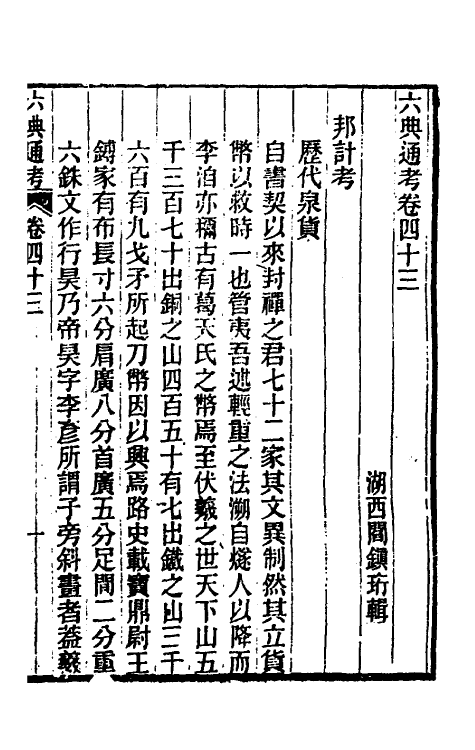 六典通考卷四十三
湖西閻鎭珩輯
邦計考
歷代泉貨
自書契以來封禪之君七十二家其文異制然其立貨
幣以救時一也管夷吾述輕重之法溯自燧人以降而
李泊亦稱古有葛天氏之幣焉至伏羲之世天下山五
千三百七十出銅之山四百五十有七出鐵之山三千
六百有九戈矛所起刀幣因以興焉路史載寶鼎尉王
鏄家有布長寸六分肩廣八分首廣五分足間二分重
六銖文作行昊乃帝昊字李彥所謂子旁斜畫者葢羲
六典通考
卷四十三
一